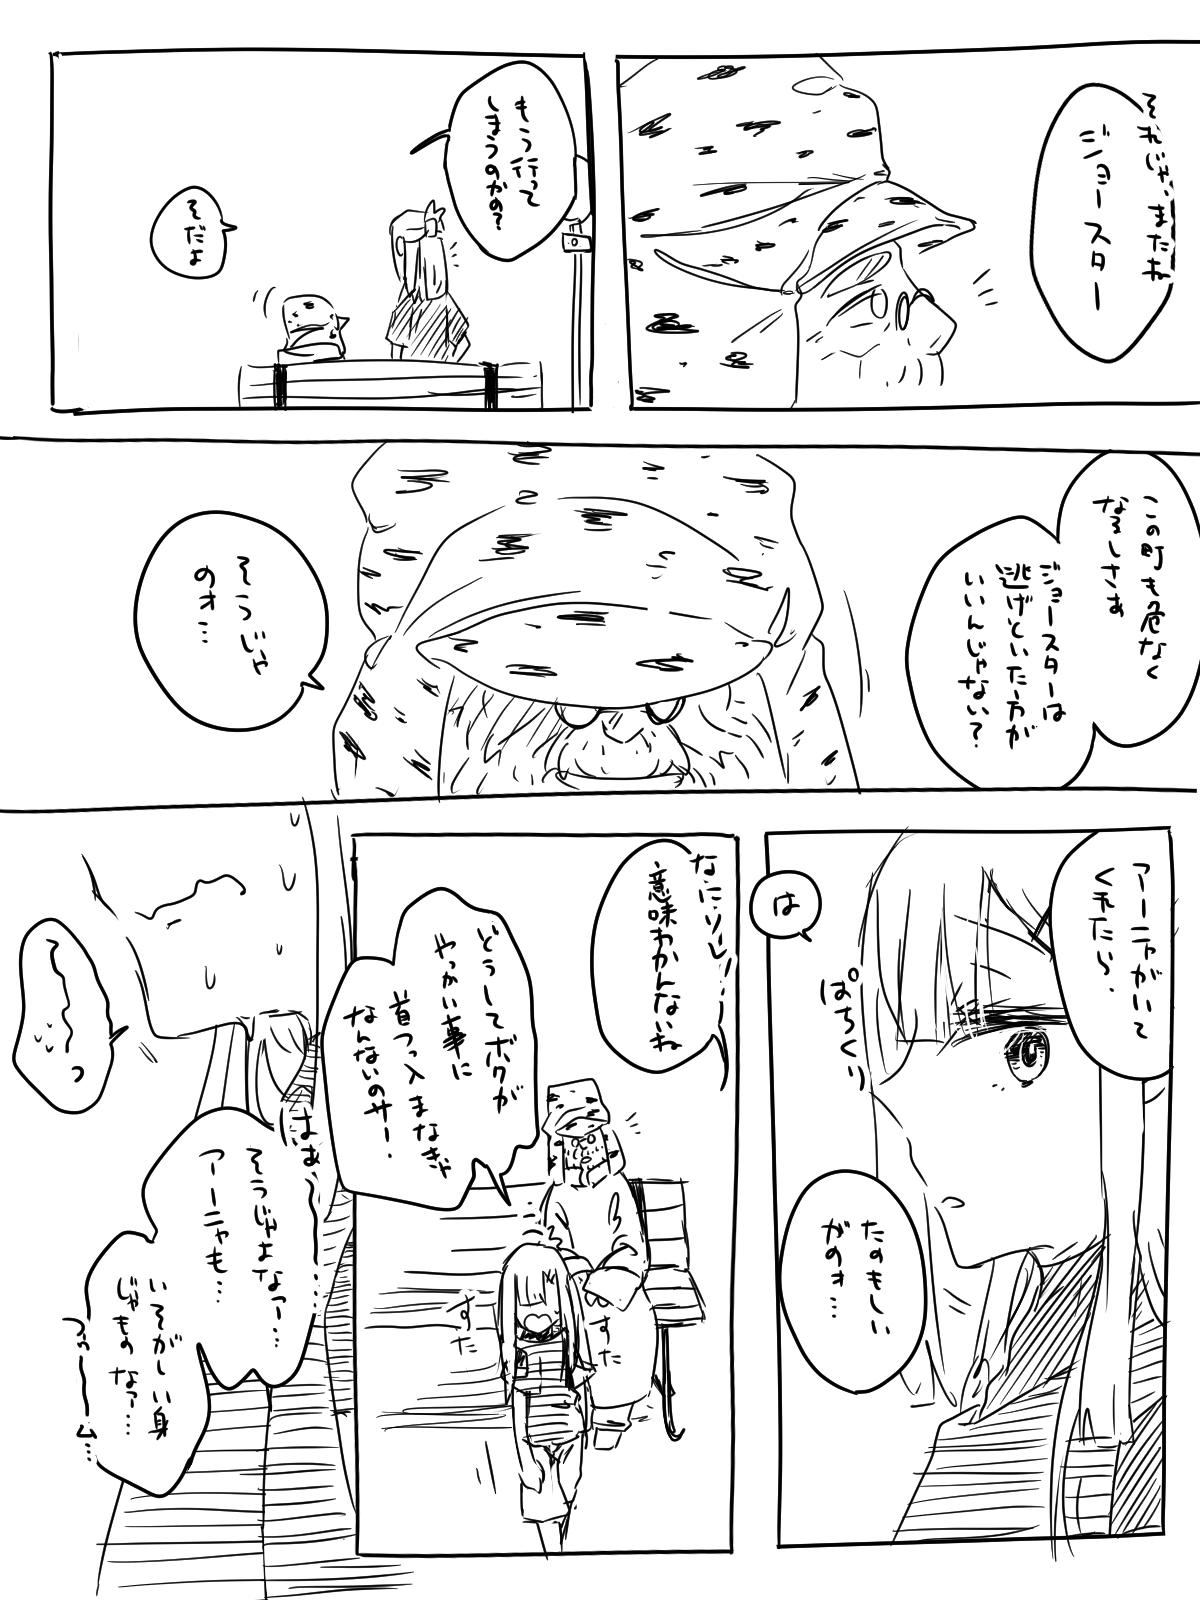 それじゃ、またね
ジョースター
もう行って
しまうのかの?
そだよ
この町も危なく
なるしさぁ
ジョースターは
逃げといた方が
いいんじゃない?
そうじゃ
のォ…
アーニャがいて
くれたら、
は
ぱちくり
たのもしい
がのォ…
なにソレ
意味わかんないね
どうしてボクが
やっかい事に
首つっ入まなきゃ
なんないのサー!
すた
すた
はぁ〜…
そうじゃよなァー…
アーニャも…
いそがしい身
じゃものなァー…